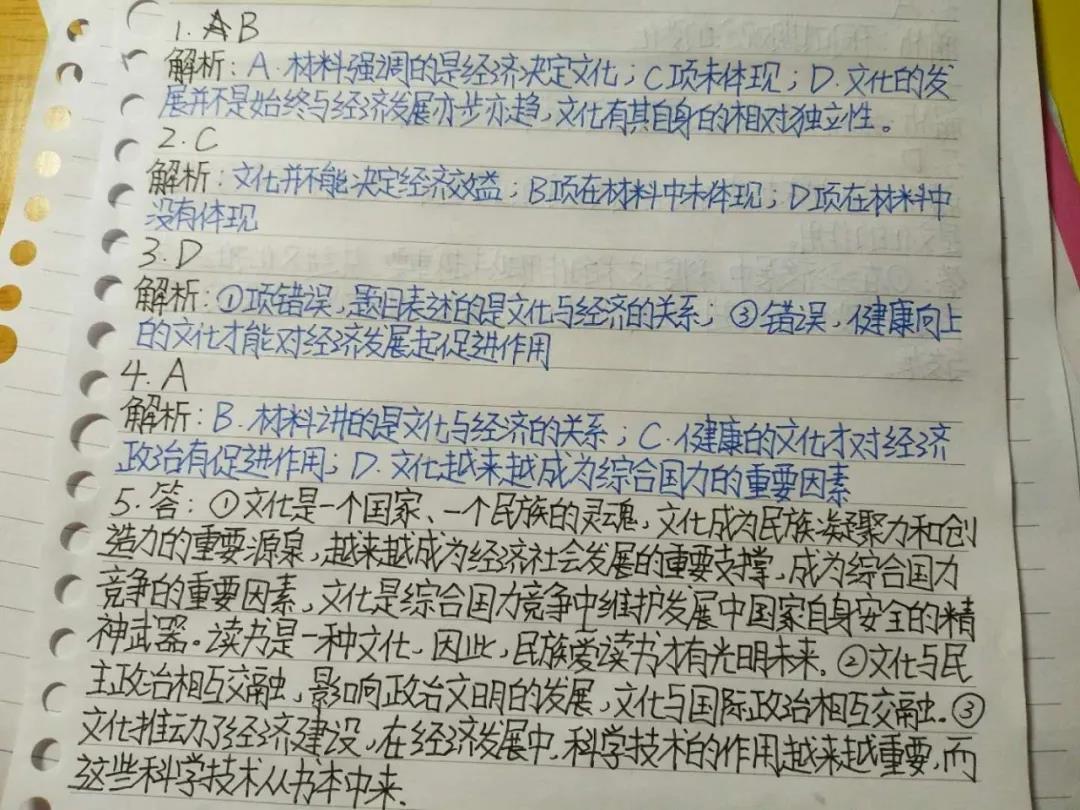 1.AB
解析:A.材料强调的是经济决定文化;C项未体现;D.文化的发
展并不是始终与经济发展亦步亦趋,文化有其自身的相对独立性。
2.C
解析:文化并不能决定经济效益;B项在材料中未体现;D项在材料中
没有体现
3.D
解析:①项错误,题归表述的是文化与经济的关系;③错误,健康向上
的文化才能对经济发展起促进作用
4.A
解析:B.材料讲的是文化与经济的关系;C.健康的文化才对经济
政治有促进作用;D.文化越来越成为综合国力的重要因素
5.答:①文化是一个国家、一个民族的灵魂,文化成为民族凝聚力和创
造力的重要源泉,越来越成为经济社会发展的重要支撑,成为综合国力
竞争的重要因素,文化是综合国力竞争中维护发展中国家自身安全的精
神武器。读书是一种文化,因此,民族爱读书才有光明未来.②文化与民
主政治相互交融,影响政治文明的发展,文化与国际政治相互交融.③
文化推动了经济建设,在经济发展中,科学技术的作用越来越重要,而
这些科学技术从书本中来.